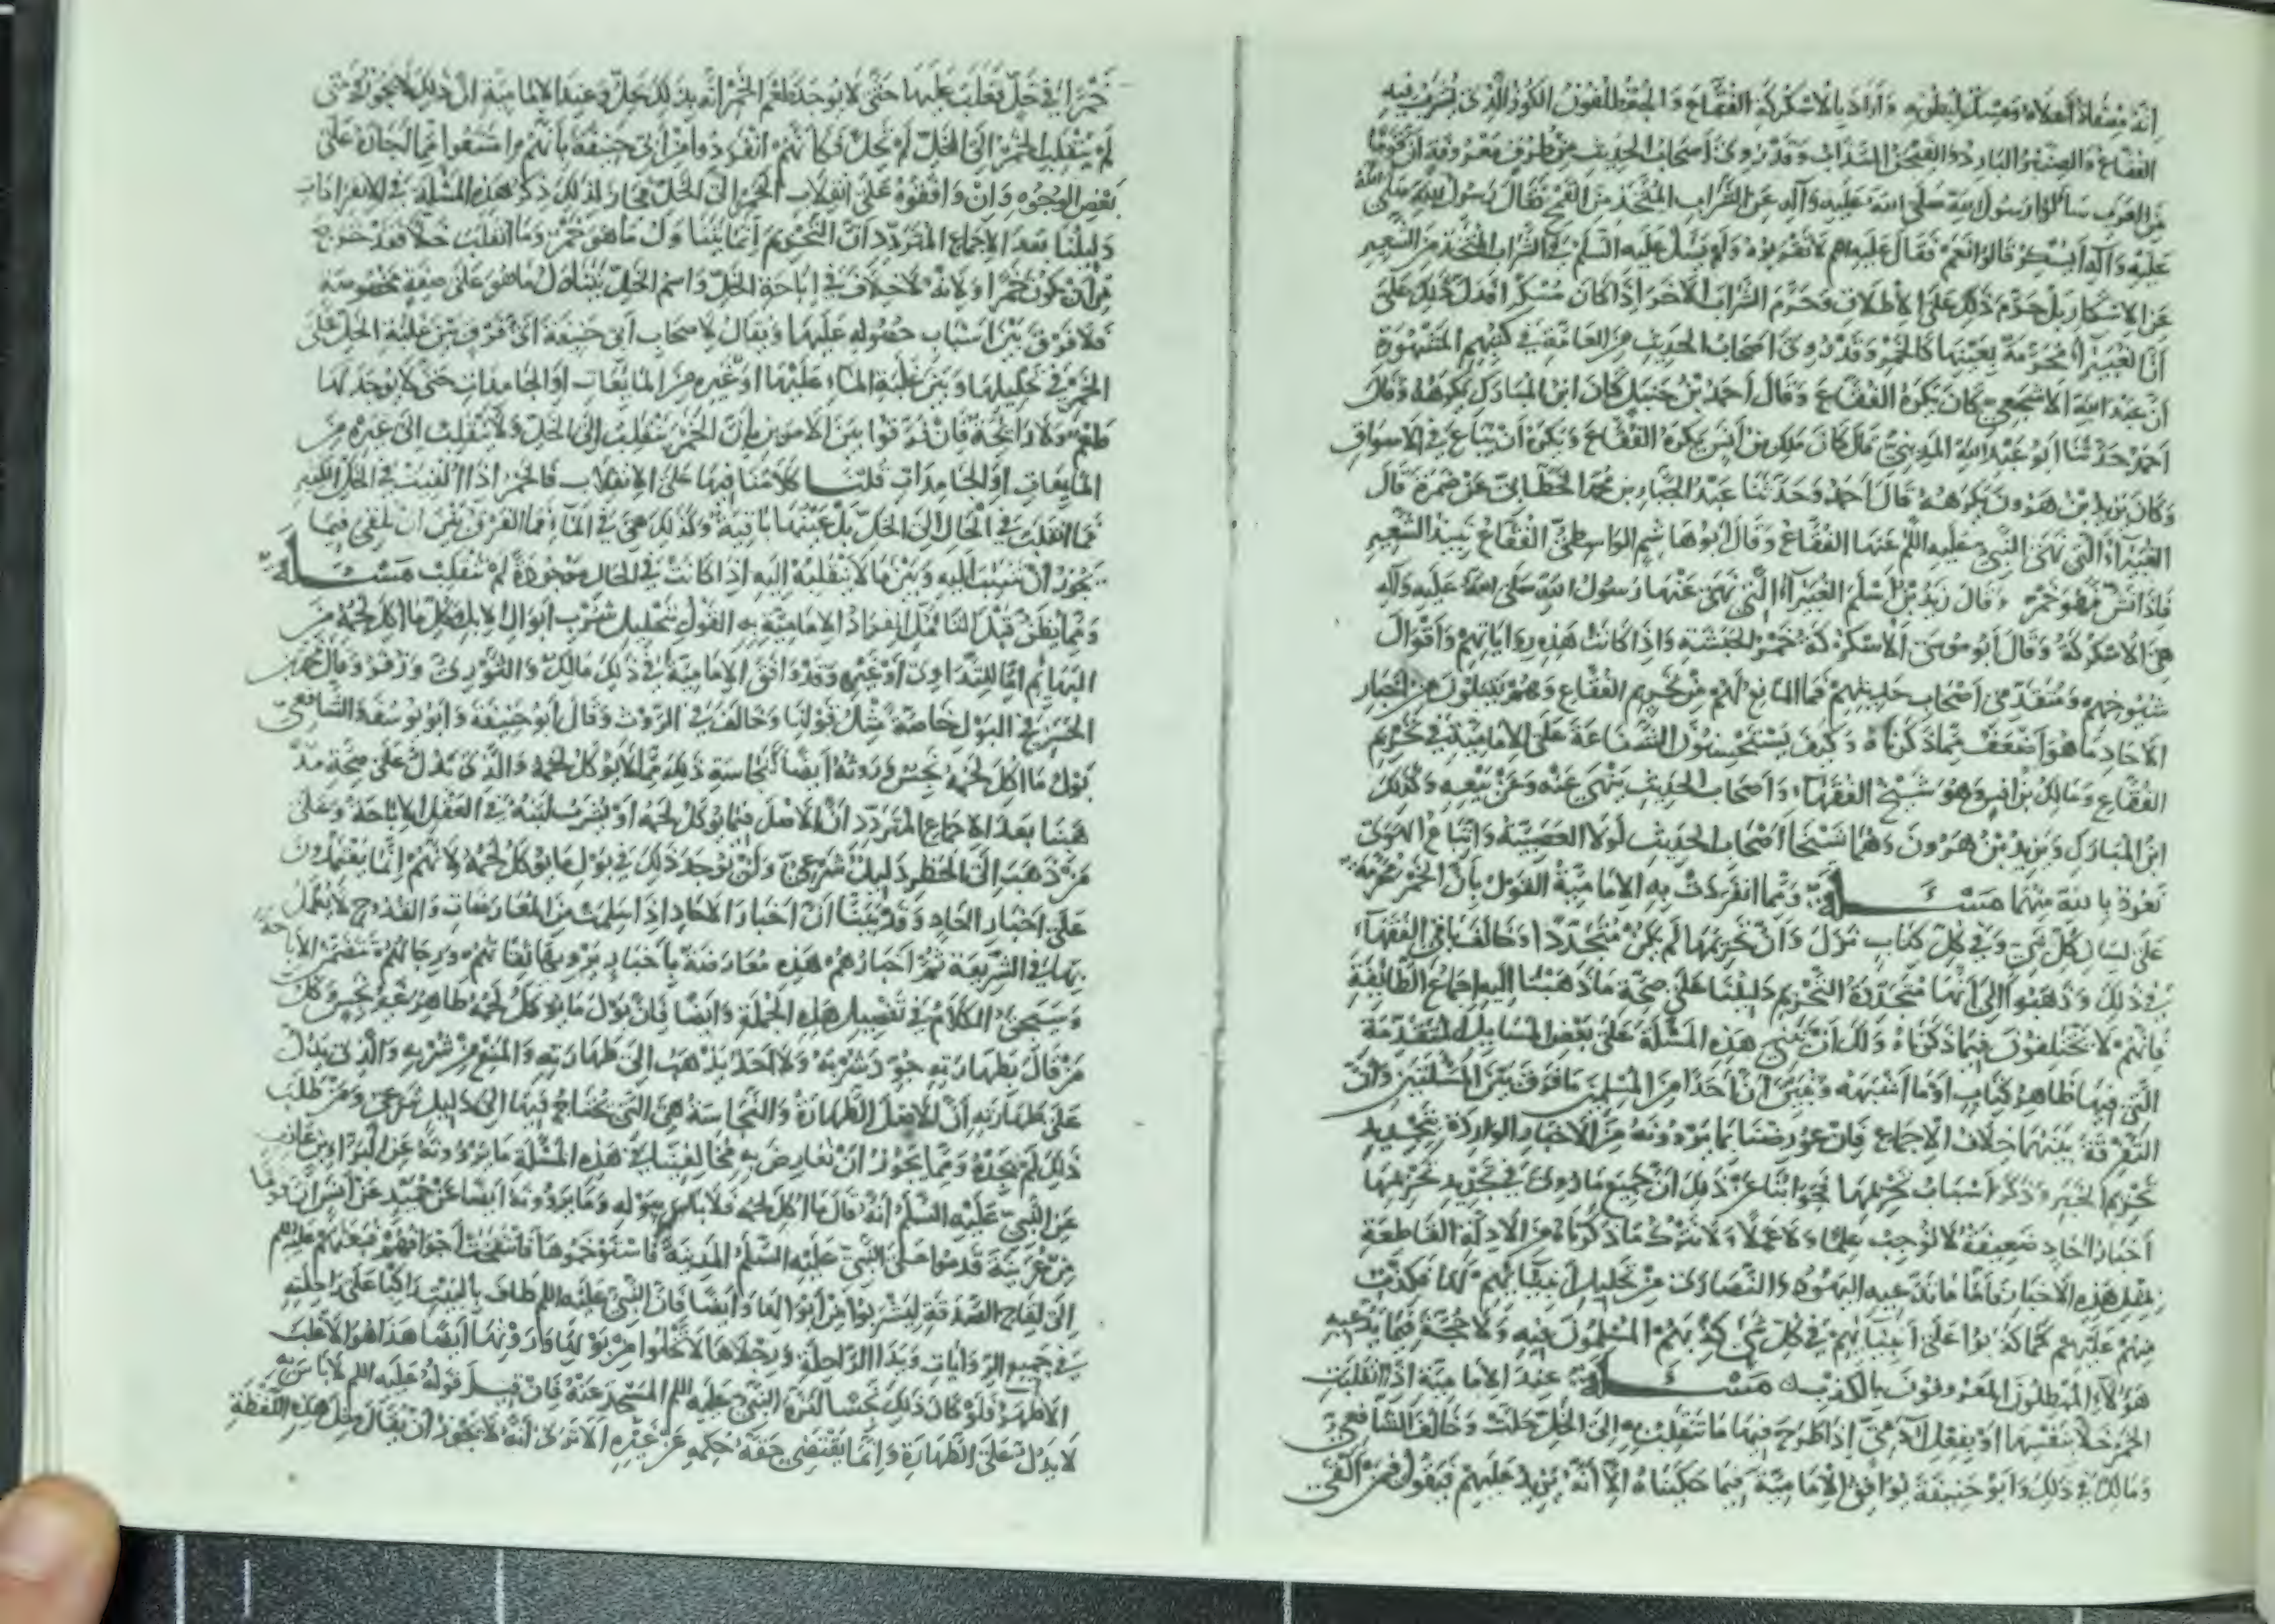 انه مشقاذ أعلاه ومسل لبطونه وأراد بالاسكركة الفقاع والجعة الكوز الذى يشرب فيه
الفقاع والصنبر البارد والفيجن السذاب وقد روى أصحاب الحديث من طرق معروفة أن قوما
من العرب سألوا رسول الله صلى الله عليه وآله عن الشراب المتخذ من القمح فقال رسول الله صلى الله
عليه وآله أيسكر قالوا نعم فقال عليه السلم لا تقربوه ولم يسئل عليه السلم فى الشراب المتخذ من الشعير
عن الاسكار بل حرم ذلك على الاطلاق وحرم الشراب الآخر اذا كان مسكرا فدل ذلك على
أن الغبيراء محرمة بعينها كالخمر وقد روى أصحاب الحديث من العامة فى كتبهم المشهورة
أن عبد الله الاشجعى كان يكره الفقاع وقال أحمد بن حنبل كان ابن المبارك يكرهه وقال
أحمد حدثنا أبو عبد الله المدينى قال كان ملك بن أنس يكره الفقاع ويكره أن يباع فى الاسواق
وكان يزيد بن هرون يكرهه قال أحمد وحدثنا عبد الجبار بن محمد الخطابى عن ضمرة قال
الغبيراء التى نهى النبى عليه السلم عنها الفقاع وقال أبو هاشم الواسطى الفقاع نبيذ الشعير
فاذا نش فهو خمر وقال زيد بن أسلم الغبيراء التى نهى عنها رسول الله صلى الله عليه وآله
هى الاسكركة وقال أبو موسى الاسكركة خمر الحبشة واذا كانت هذه رواياتهم وأقوال
شيوخهم ومتقدمى أصحاب حديثهم فما المانع لهم من تحريم الفقاع وهم يقبلون من أخبار
الآحاد ما هو أضعف مما ذكرناه وكيف يستحسنون الشناعة على الامامية فى تحريم
الفقاع ومالك بن أنس وهو شيخ الفقهاء وأصحاب الحديث ينهى عنه وعن بيعه وكذلك
ابن المبارك ويزيد بن هرون وهما شيخا أصحاب الحديث لولا العصبية واتباع الهوى
نعوذ بالله منهما مسئلة ومما انفردت به الامامية القول بأن الخمر محرمة
على لسان كل نبى وفى كل كتاب نزل وأن تحريمها لم يكن متجددا وخالف باقى الفقهاء
فى ذلك وذهبوا الى أنها متجددة التحريم دليلنا على صحة ما ذهبنا اليه اجماع الطائفة
فانهم لا يختلفون فيما ذكرناه ولك أن تبنى هذه المسئلة على بعض المسايل المتقدمة
التى فيها ظاهر كتاب أو ما أشبهه وتبين أن أحدا من المسلمين ما فرق بين المسئلتين وأن
التفرقة بينهما خلاف الاجماع فان عورضنا بما يروونه من الاخبار الواردة بتجديد
تحريم الخمر وذكر أسباب تحريمها فجوابنا عن ذلك أن جميع ما روى فى تجديد تحريمها
أخبار آحاد ضعيفة لا توجب علما ولا عملا ولا يترك ما ذكرناه من الادلة القاطعة
بمثل هذه الاخبار فأما ما تدعيه اليهود والنصارى من تحليل أنبيائهم لها فكذب
منهم عليهم كما كذبوا على أنبيائهم فى كل شى كذبهم المسلمون فيه ولا حجة فيما يدعيه
هؤلاء المبطلون المعروفون بالكذب مسئلة عند الامامية اذا انقلبت
الخمر خلا بنفسها أو بفعل آدمى اذا طرح فيها ما تنقلب به الى الخل حلت وخالف الشافعى
ومالك فى ذلك وأبو حنيفة يوافق الامامية فيما حكيناه الا أنه يزيد عليهم فيقول فيمن ألقى
خمرا فى خل فغلب عليها حتى لا يوجد طعم الخمر انه بذلك يحل وعند الامامية أن ذلك لا يجوز ومتى
لم ينقلب الخمر الى الخل لم يحل فكأنهم انفردوا من أبى حنيفة بأنهم امتنعوا مما أجازه على
بعض الوجوه وان وافقوه على انقلاب الخمر الى الخل فجاز لذلك ذكر هذه المسئلة فى الانفرادات
دليلنا بعد الاجماع المتردد أن التحريم انما يتناول ما هو خمر وما انقلب خلا فقد خرج
من أن يكون خمرا ولانه لا خلاف فى اباحة الخل واسم الخل يتناول ما هو على صفة مخصوصة
فلا فرق بين أسباب حصوله عليها ويقال لاصحاب أبى حنيفة أى فرق بين غلبة الخل على
الخمر فى تحليلها وبين غلبة الماء عليها أو غيره من المائعات أو الجامدات حتى لا يوجد لها
طعم ولا رائحة فان فرقوا بين الامرين بأن الخمر تنقلب الى الخل ولا تنقلب الى غيره من
المايعات أو الجامدات قلنا كلامنا فيها على الانقلاب فالخمر اذا ألقيت فى الخل الكثير
فما انقلبت فى الحال الى الخل بل عينها باقية وكذلك هى فى الماء فما الفرق بين أن يلقى فيما
يجوز أن تنقلب اليه وبين ما لا ينقلب اليه اذا كانت فى الحال موجودة لم تنقلب مسئلة
ومما يظن قبل التأمل انفراد الامامية به القول بتحليل شرب أبوال الابل وكل ما أكل لحمه من
البهائم اما للتداوى أو غيره وقد وافق الامامية فى ذلك مالك والثورى وزفر وقال محمد بن
الحسن فى البول خاصة مثل قولنا وخالف فى الروث وقال أبو حنيفة وأبو يوسف والشافعى
بول ما أكل لحمه نجس وروثه أيضا كنجاسة ذلك مما لا يؤكل لحمه والذى يدل على صحة مذ
هبنا بعد الاجماع المتردد أن الاصل فيما يؤكل لحمه أو يشرب لبنه فى العقل الاباحة وعلى
من ذهب الى الحظر دليل شرعى ولن يوجد ذلك فى بول ما يؤكل لحمه لانهم انما يعتمدون
على أخبار آحاد وقد بينا أن أخبار الآحاد اذا سلمت من المعارضات والقدوح لا يعمل
بها فى الشريعة ثم أخبارهم هذه معارضة بأخبار يرويها ثقاتهم ورجالهم تتضمن الاباحة
وسيجئ الكلام فى تفصيل هذه الجملة وأيضا فان بول ما يؤكل لحمه طاهر غير نجس وكل
من قال بطهارته جوز شربه ولا أحد يذهب الى طهارته والمنع من شربه والذى يدل
على طهارته أن الاصل الطهارة والنجاسة هى التى يحتاج فيها الى دليل شرعى ومن طلب
ذلك لم يجده ومما يجوز أن نعارض به مخالفينا فى هذه المسئلة ما يروونه عن البراء بن عازب
عن النبى عليه السلم أنه قال ما أكل لحمه فلا بأس ببوله وما يروونه أيضا عن حميد عن أنس أن قوما
من عرينة قدموا على النبى عليه السلم المدينة فاستوخموها فانتفخت أجوافهم فبعثهم عليه السلم
الى لقاح الصدقة ليشربوا من أبوالها وأيضا فان النبى عليه السلم طاف بالبيت راكبا على راحلته
فى جميع الروايات ويدا الراحلة ورجلاها لا تخلوا من بولها وروثها أيضا هذا هو الاغلب
الاظهر فلو كان ذلك نجسا لنزه النبى عليه السلم المسجد عنه فان قيل قوله عليه السلم لا بأس به
لا يدل على الطهارة وانما يقتضى خفة حكمه عن غيره ألا ترى أنه لا يجوز أن يقال مثل هذه اللفظة